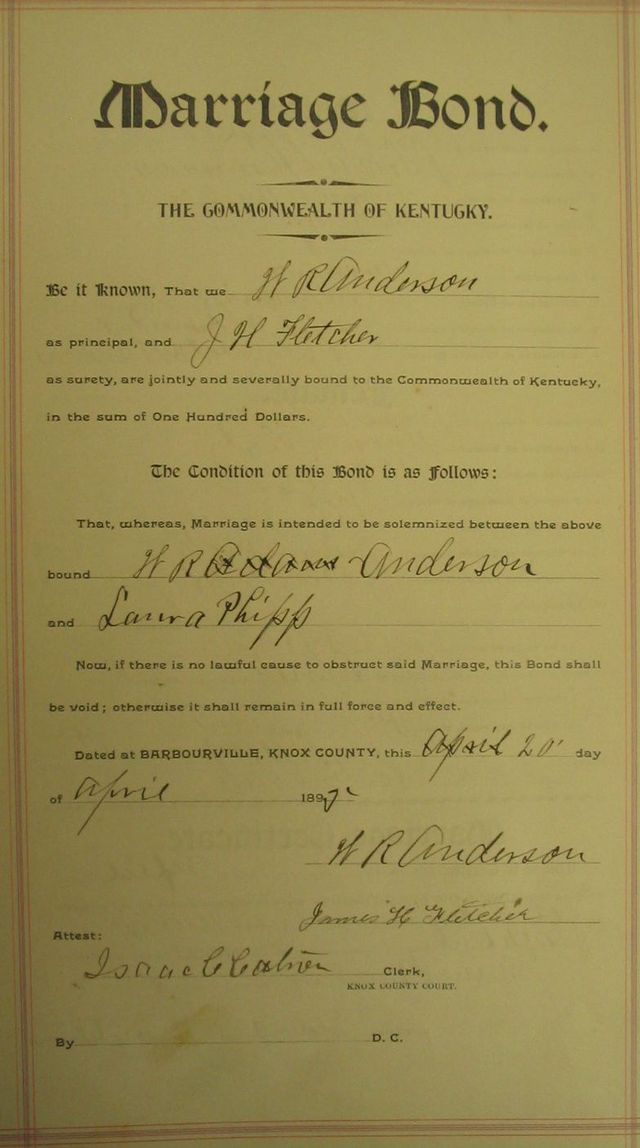 Marriage Bond.
THE COMMONWEALTH OF KENTUCKY.
Be it Known, That we W R Anderson
as principal, and J H Fletcher
as surety, are jointly and severally bound to the Commonwealth of Kentucky,
in the sum of One Hundred Dollars.
The Condition of this Bond is as Follows:
That, whereas, Marriage is intended to be solemnized between the above
bound W R Adams Anderson
and Laura Phipp
Now, if there is no lawful cause to obstruct said Marriage, this Bond shall
be void; otherwise it shall remain in full force and effect.
Dated at BARBOURVILLE, KNOX COUNTY, this April 20 day
of April 189
W R Anderson
James H Fletcher
Attest:
Isaac C Clerk,
KNOX COUNTY COURT.
By D. C.